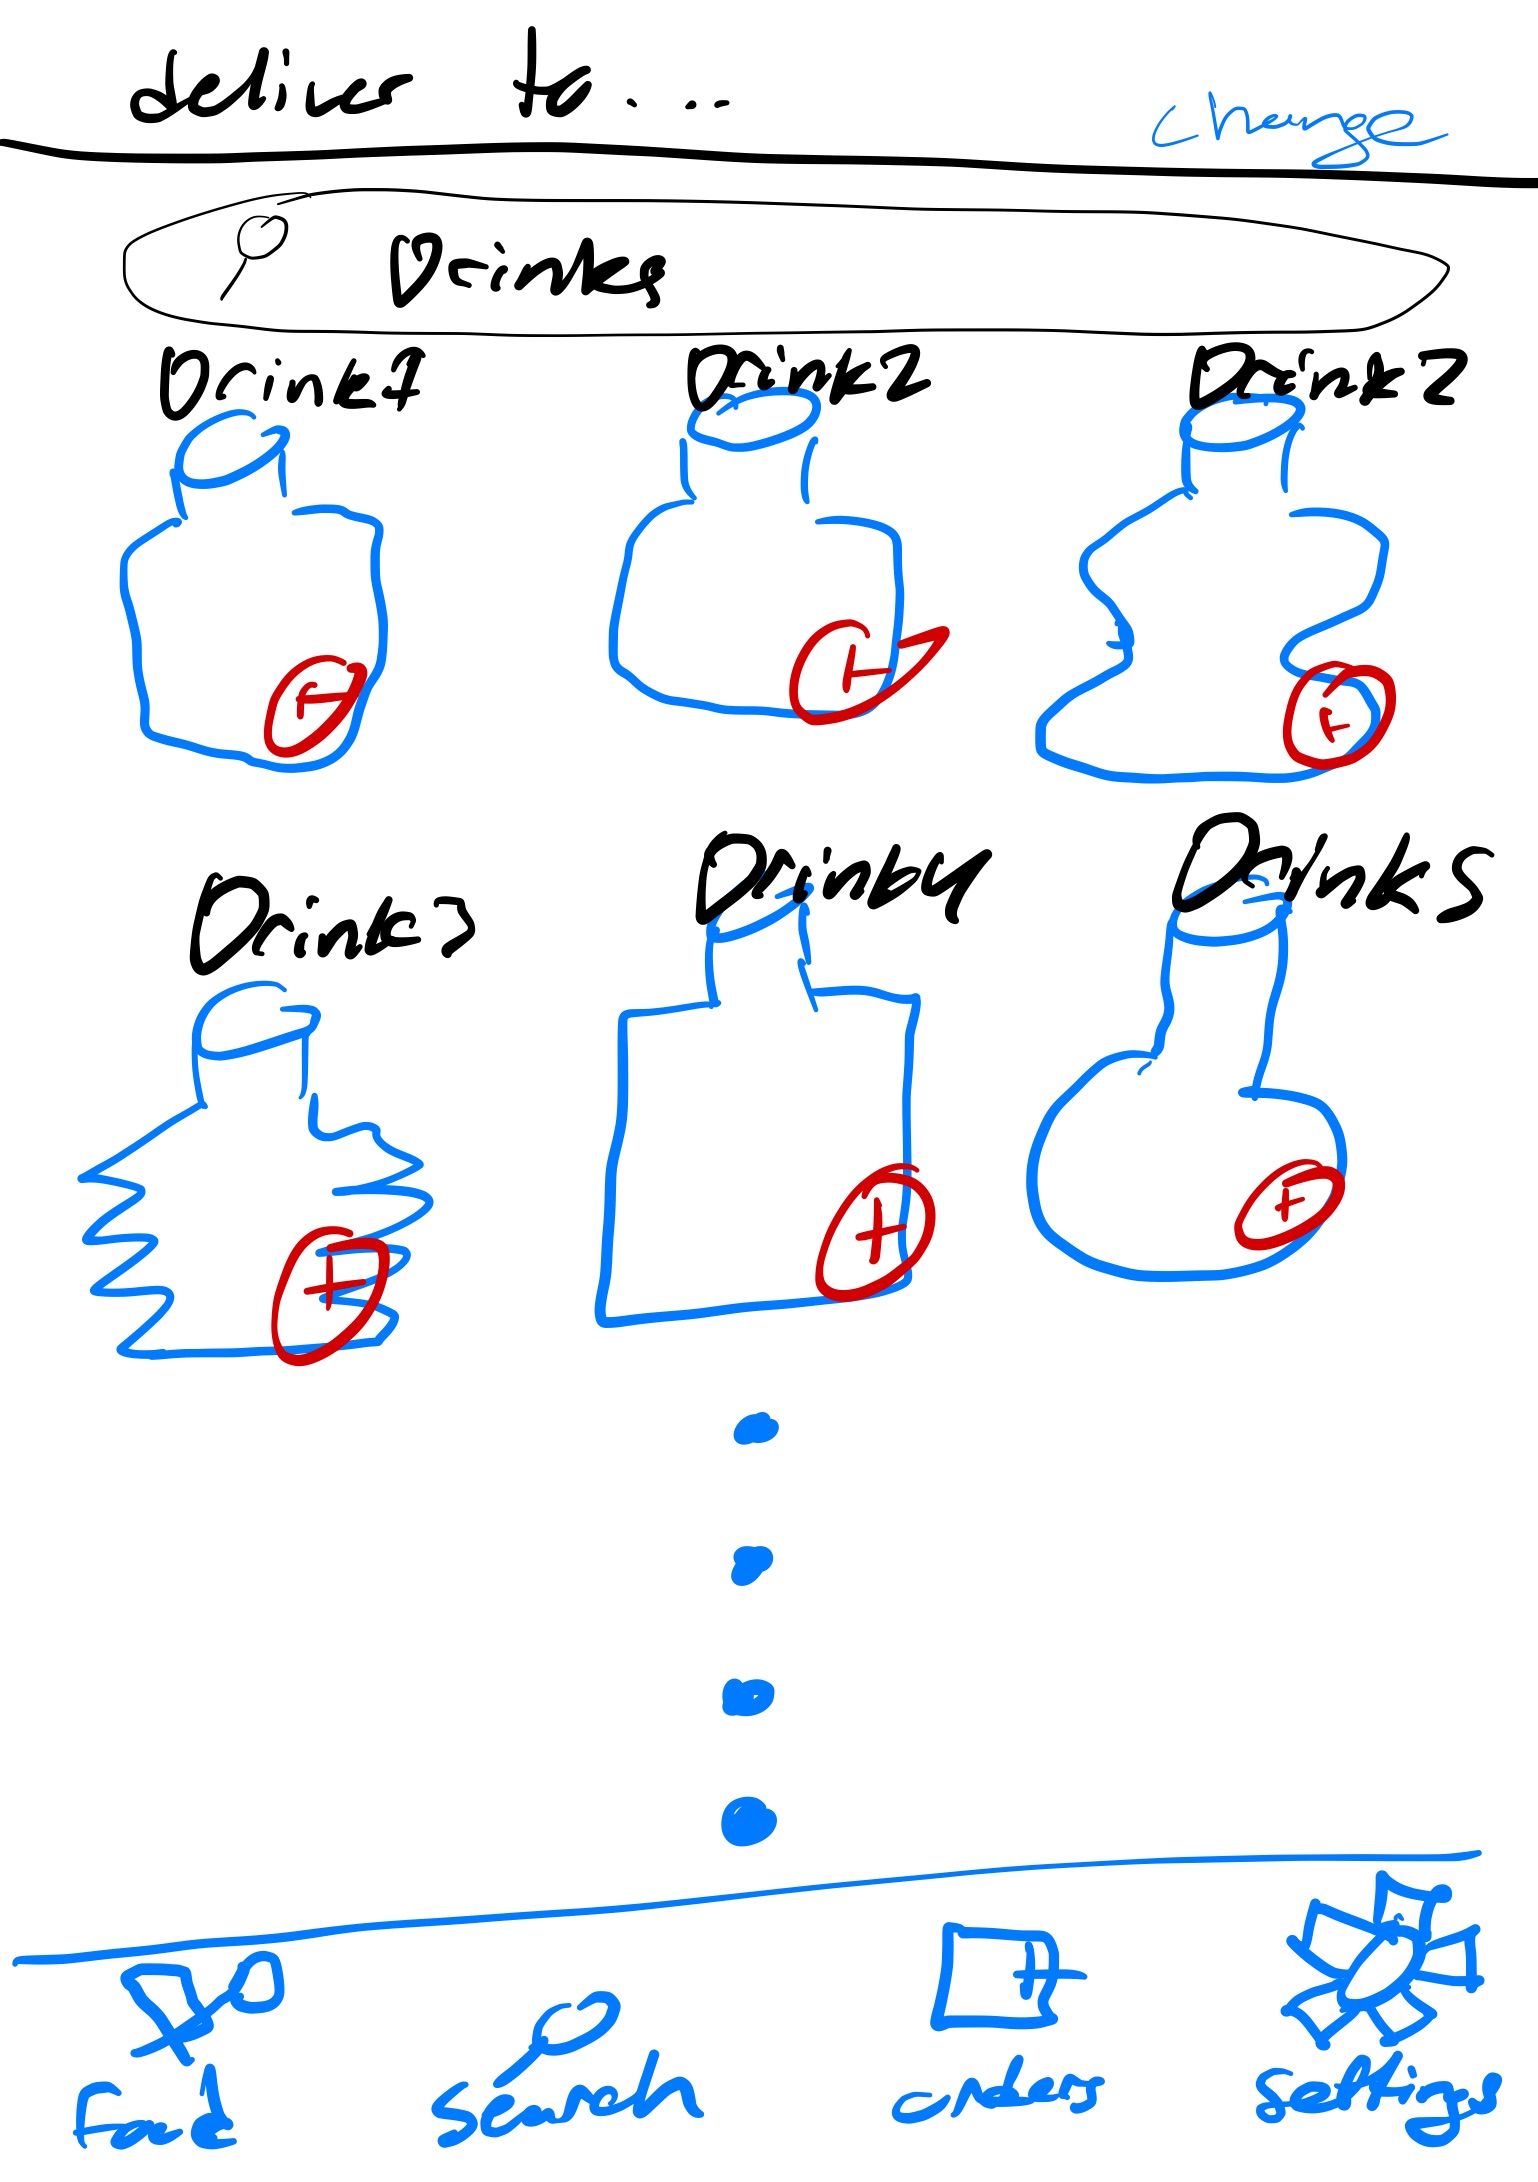 deliver to....
change
Drinks
Drink1 Drink2 Drink2
Drink3 Drink4 Drink5
Food Search orders settings